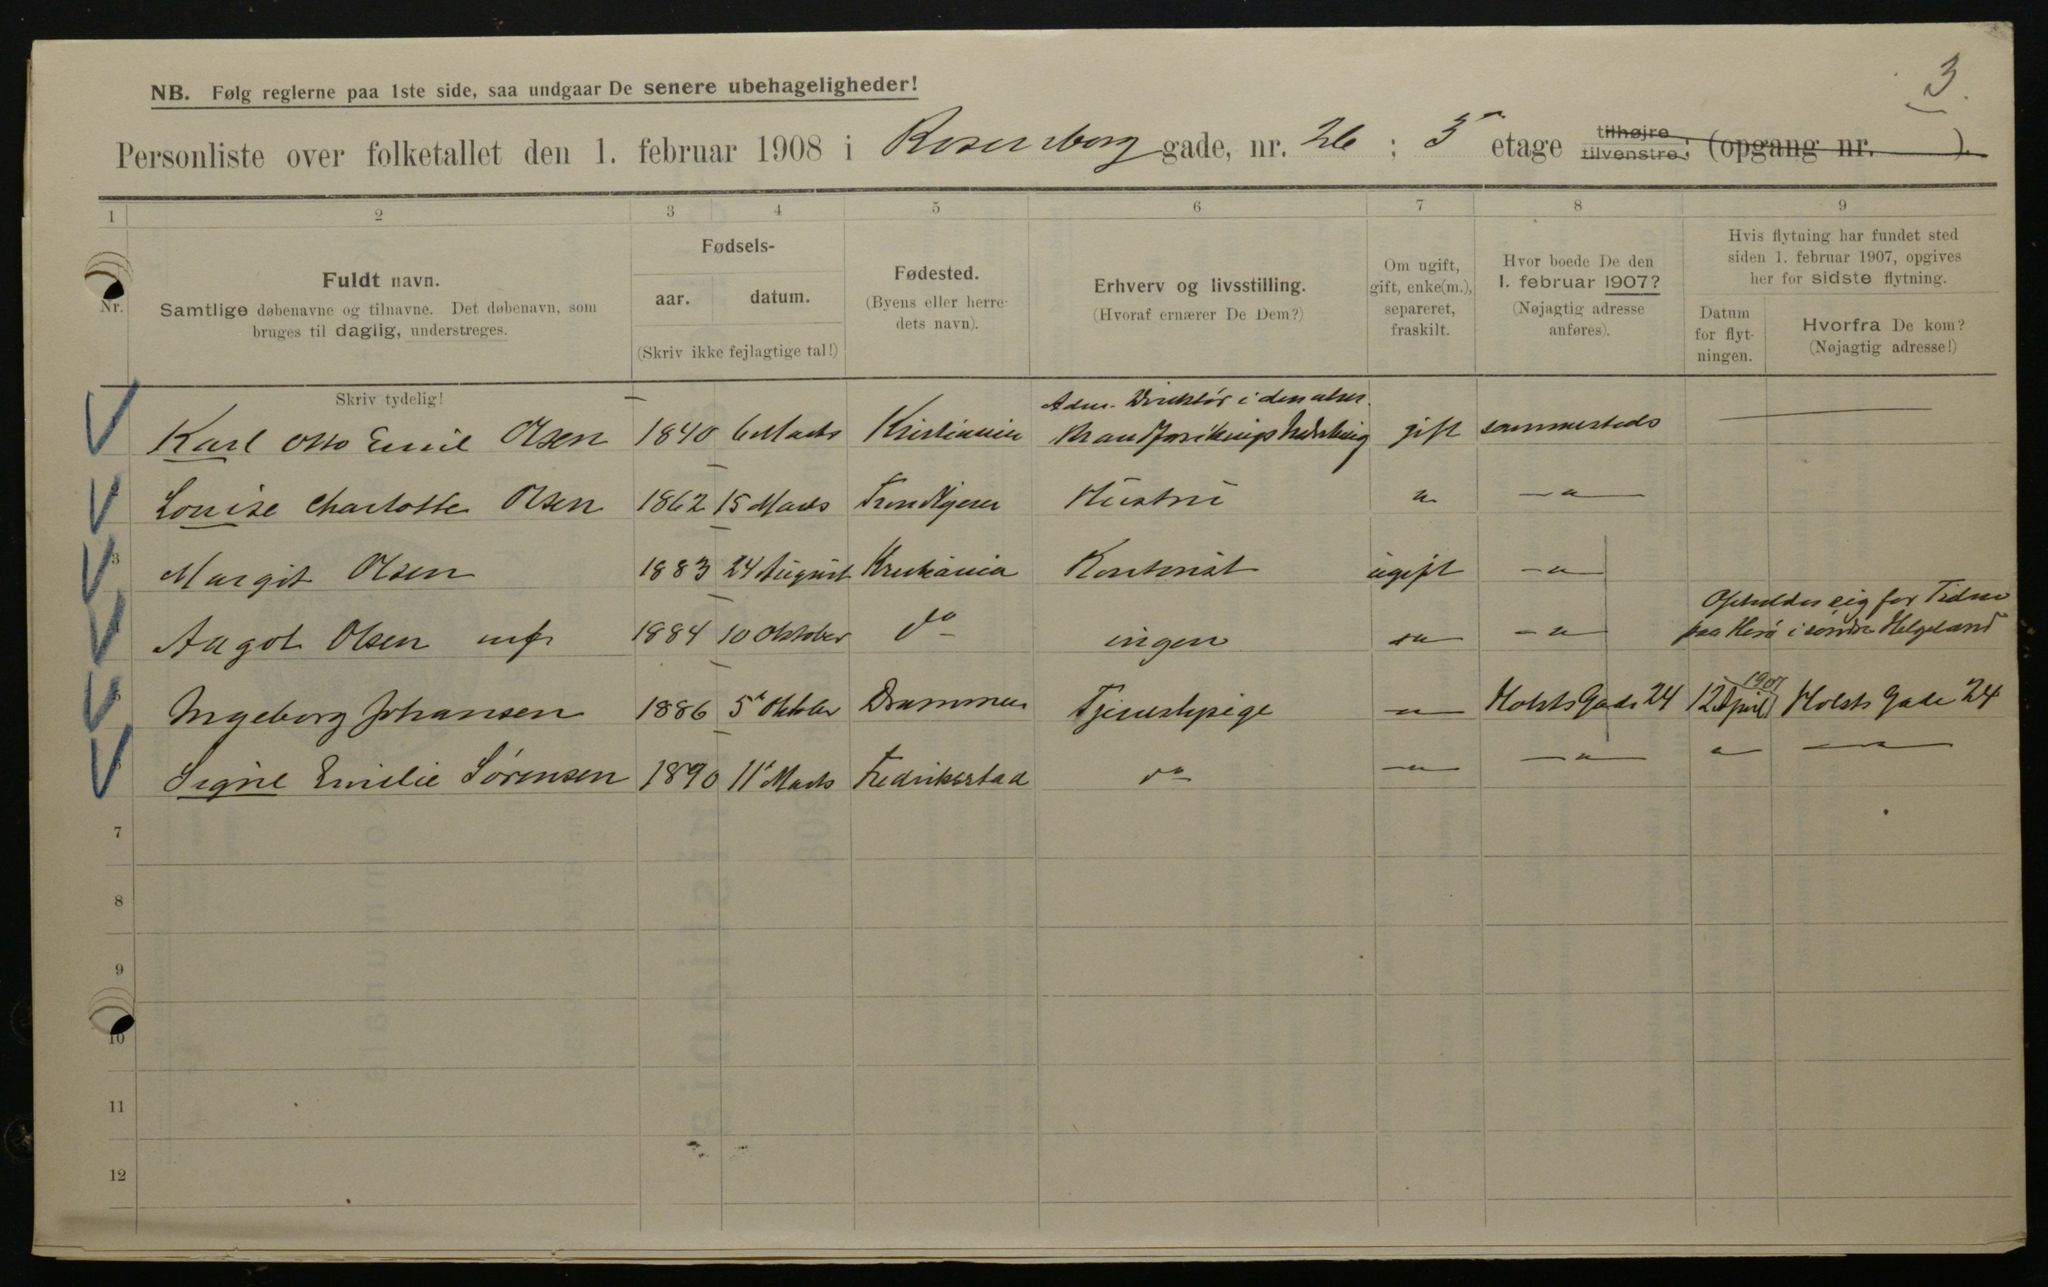 3
NB. Følg reglerne paa 1ste side, saa undgaar De senere ubehageligheder!
Personliste over folketallet den 1. februar 1908 i Rosenborg gade, nr. 26 ; 3 etage tilhøjre tilvenstre; (opgang nr. ).
1 2 3 4 5 6 7 8 9
Nr.
Fuldt navn.
Samtlige døbenavne og tilnavne. Det døbenavn, som
bruges til daglig, understreges.
Fødsels-
aar. datum.
(Skriv ikke fejlagtige tal!)
Fødested.
(Byens eller herre-
dets navn).
Erhverv og livsstilling.
(Hvoraf ernærer De Dem?)
Om ugift,
gift, enke(m.),
separeret,
fraskilt.
Hvor boede De den
1. februar 1907?
(Nøjagtig adresse
anføres).
Hvis flytning har fundet sted
siden 1. februar 1907, opgives
her for sidste flytning.
Datum
for flyt-
ningen.
Hvorfra De kom?
(Nøjagtig adresse!)
Skriv tydelig!
Adm. Direktör i den
Karl Otto Emil Olsen 1840 6 Marts Kristiania gift sammesteds
Louise Charlotte Olsen 1862 15 Marts Hustru " — " —
3 Margit Olsen 1883 24 August Kristiania Kontorist ugift — " —
Opholder sig for Tiden
Aagot Olsen 1884 10 Oktober do ingen — " — — " — paa Herö i söndre Helgeland
1907
5 Ingeborg Johansen 1886 5 Oktober Drammen Tjenestepige — " — Holsts Gade 24 12 April Holsts Gade 24
Signe Emilie Sørensen 1890 11 Marts Fredrikstad do — " — — " — " — " —
7
8
9
10
11
12